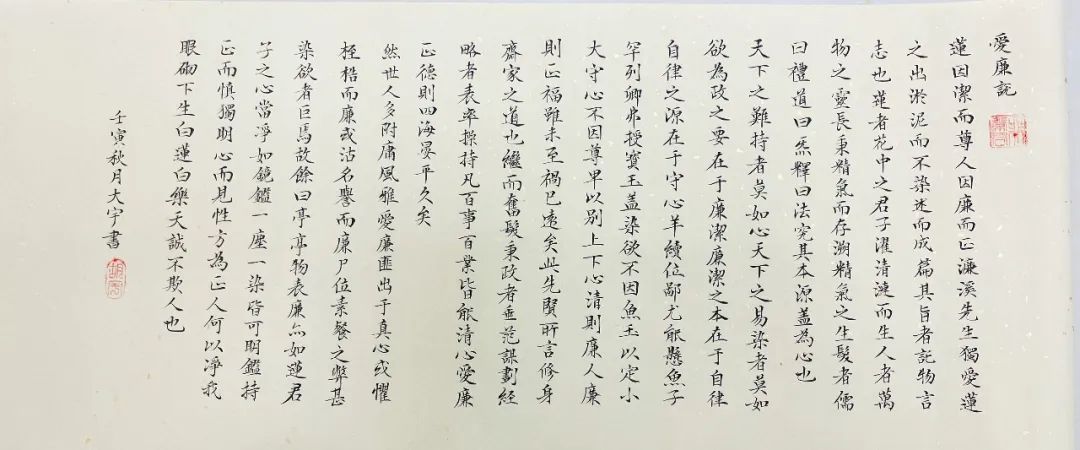 愛廉記
蓮因潔而尊人因廉而正濂溪先生獨愛蓮
之出淤泥而不染述而成篇其旨者託物言
志也蓮者花中之君子濯清漣而生人者萬
物之靈長秉精氣而存溯精氣之生髮者儒
曰禮道曰炁釋曰法究其本源蓋為心也
天下之難持者莫如心天下之易染者莫如
欲為政之要在于廉潔廉潔之本在于自律
自律之源在于守心羊續位鄙尤能懸魚子
罕列卿弗授寶玉蓋染欲不因魚玉以定小
大守心不因尊卑以別上下心清則廉人廉
則正福雖未至禍已遠矣此先賢所言修身
齋家之道也繼而奮髮秉政者垂范謀劃經
略者表率操持凡百事百業皆能清心愛廉
正德則四海晏平久矣
然世人多附庸風雅愛廉匪出于真心或懼
桎梏而廉或沽名譽而廉尸位素餐之弊甚
染欲者巨焉故餘曰亭亭物表廉亦如蓮君
子之心當淨如鏡鑑一塵一染皆可明鑑持
正而慎獨明心而見性方為正人何以淨我
眼砌下生白蓮白樂天誠不欺人也
壬寅秋月大宇書